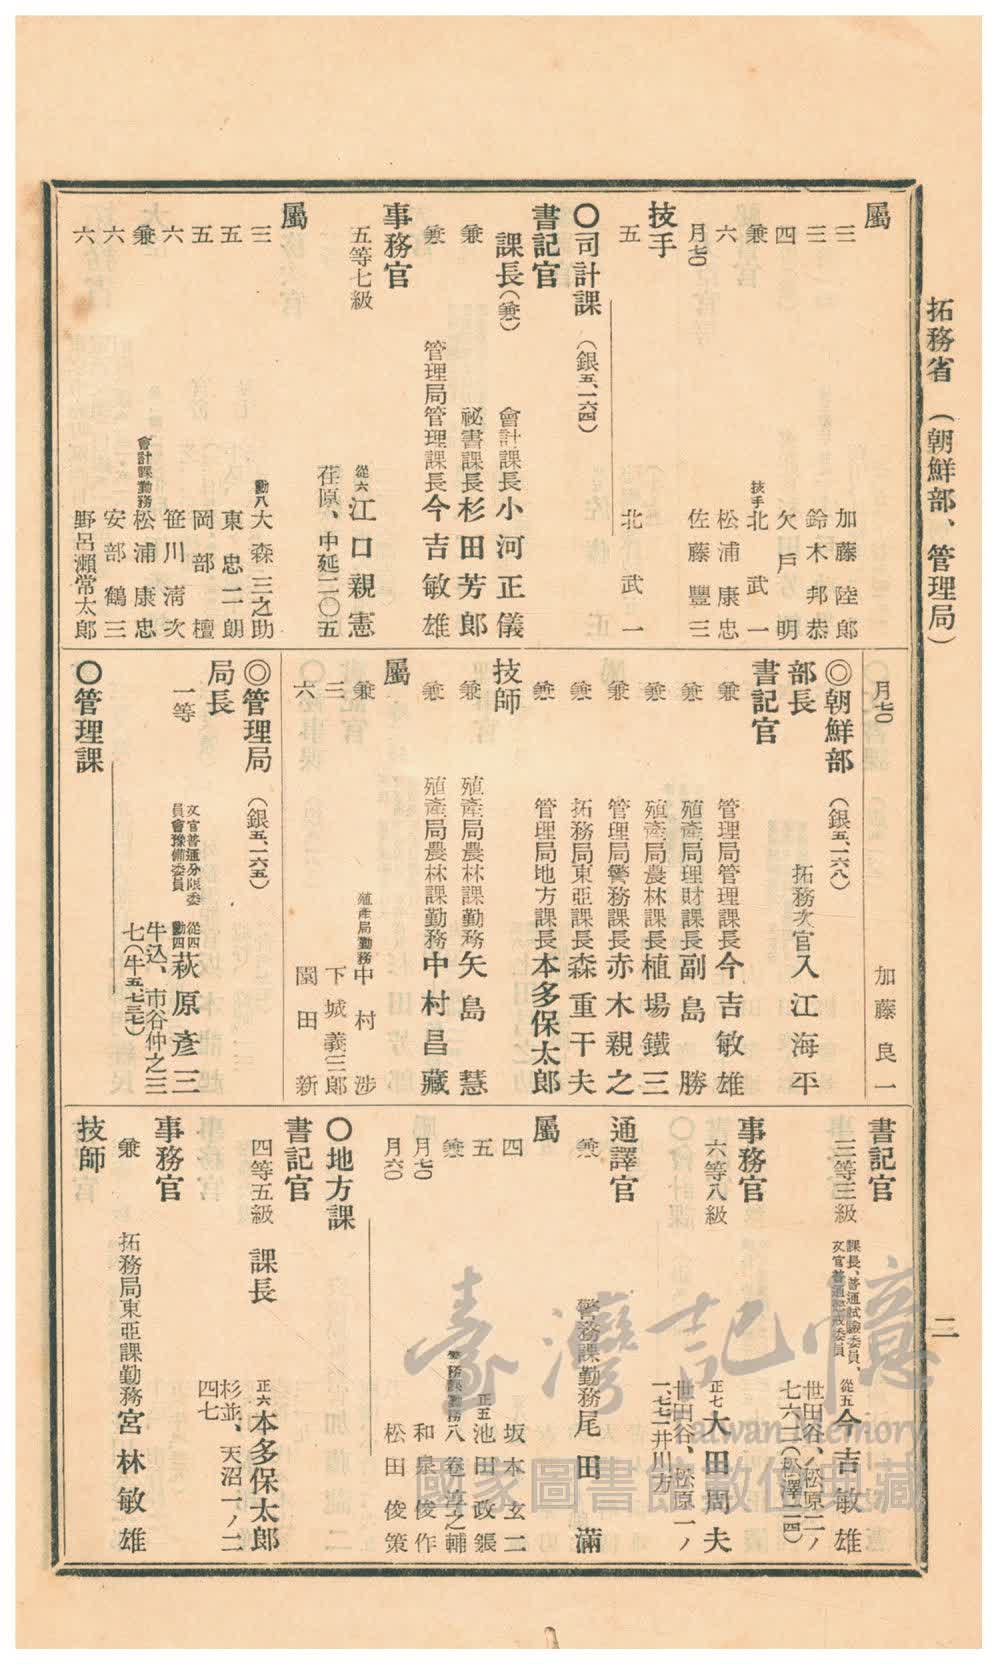 拓務省　（朝鮮部、管理局）
二
屬
三　加藤陸郎
三　鈴木邦恭
四　欠戸明
兼　技手　北武一
六　松浦康忠
月七〇　佐藤豐三
技手
五　北武一
〇司計課　（銀五、一六四）
書記官
課長（兼）　會計課長　小河正儀
兼　祕書課長　杉田芳郎
兼　管理局管理課長　今吉敏雄
事務官
五等七級　從六　江口親憲
荏原、中延二〇五
屬
三　勳八　大森三之助
五　東忠二朗
五　岡部檀
六　笹川淸次
兼　會計課勤務　松浦康忠
六　安部鶴三
六　野呂瀨常太郎
月七〇　加藤良一
◎朝鮮部　（銀五、一六八）
部長　拓務次官　入江海平
書記官
兼　管理局管理課長　今吉敏雄
兼　殖產局理財課長　副島勝
兼　殖產局農林課長　植場鐵三
兼　管理局警務課長　赤木親之
兼　拓務局東亞課長　森重干夫
兼　管理局地方課長　本多保太郎
技師
兼　殖產局農林課勤務　矢島慧
兼　殖產局農林課勤務　中村昌藏
屬
兼　殖產局勤務　中村渉
三　下城義三郎
六　園田新
◎管理局　（銀五、一六五）
局長
一等　文官普通分限委員會豫備委員　從四勳四　萩原彥三
牛込、市谷仲之三
七（牛五、七三七）
〇管理課
書記官
三等三級　課長、普通試驗委員、文官普通懲戒委員　從五　今吉敏雄
世田谷、松原二ノ
七六一（松澤二二四）
事務官
六等八級　正七　大田周夫
世田谷、松原一ノ
一七一井川方
通譯官
兼　警務課勤務　尾田滿
屬
四　坂本玄二
五　正五　池田政鋠
兼　警務課勤務　八卷淳之輔
月七〇　和泉俊作
月六〇　松田俊策
〇地方課
書記官
四等五級　課長　正六　本多保太郎
杉並、天沼一ノ二
四七
事務官
兼　拓務局東亞課勤務　宮林敏雄
技師
臺灣記憶
Taiwan Memory
國家圖書館數位典藏